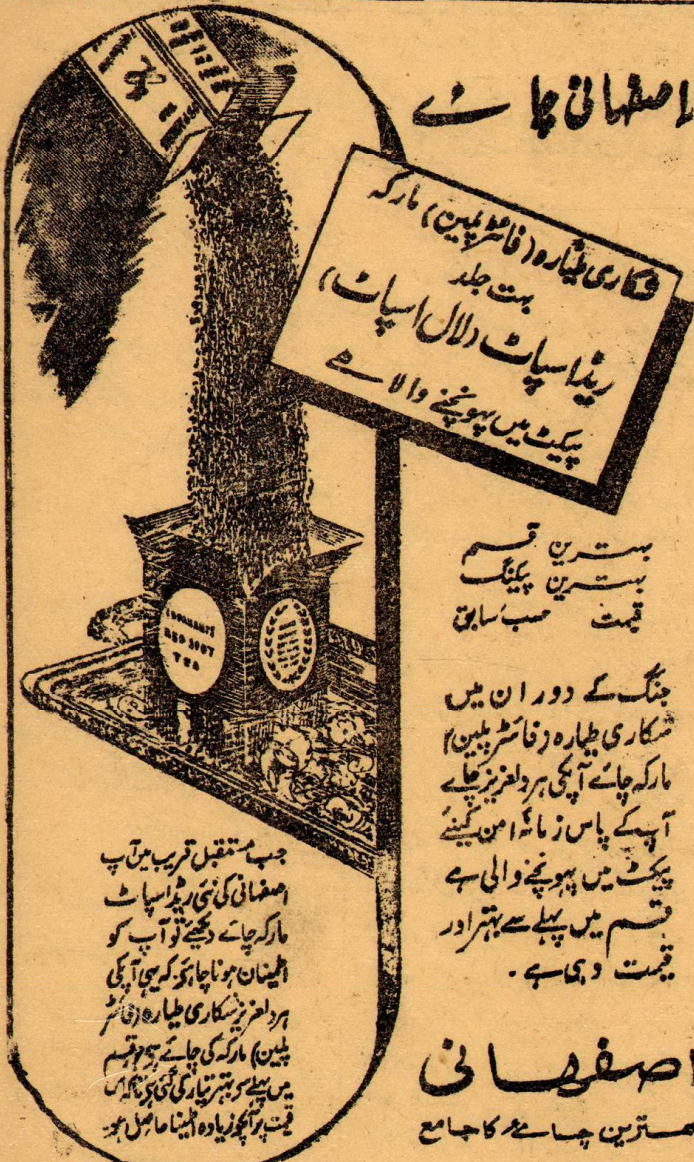 اصفہانی چائے
شکاری طیارہ (فائٹر پلین) مارکہ
بہت جلد
ریڈ اسپاٹ (لال اسپاٹ)
پیکٹ میں پہونچنے والا ہے
ISPAHANI'S
RED SPOT
TEA
بہترین قسم
بہترین پیکنگ
قیمت حسب سابق
جنگ کے دوران میں
شکاری طیارہ (فائٹر پلین)
مارکہ چائے آپکی ہر دلعزیز چاے
آپ کے پاس زمانۂ امن کیلئے
پیکٹ میں پہونچنے والی ہے
قسم میں پہلے سے بہتر اور
قیمت وہی ہے۔
جب مستقبل قریب میں آپ
اصفہانی کی نئی ریڈ اسپاٹ
مارکہ چائے دیکھئے تو آپ کو
اطمینان ہونا چاہئے کہ یہی آپکی
ہر دلعزیز شکاری طیارہ (فائٹر
پلین) مارکہ کی چائے ہے جو قسم
میں پہلے سے بہتر تیار کی گئی ہے تاکہ اس
قیمت پر آپکو زیادہ اطمینان حاصل ہو۔
اصفہانی
بہترین چائے کا جامع